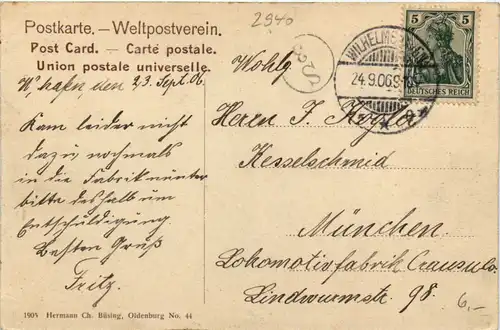 2940
Postkarte. — Weltpostverein.
Post Card. — Carte postale.
Union postale universelle.
W'hafen, den 23. Sept. 06.
Kam leider nicht
dazu nochmals
in die Fabrik
bitte deshalb um
Entschuldigung
Besten Gruß
Fritz.
1905 Hermann Ch. Büsing, Oldenburg No. 44
5 5
DEUTSCHES REICH
24.9.06
Wohlg
Herrn F.
Kesselschmid
München
Lokomotivfabrik
Lindwurmstr. 98.
6,-